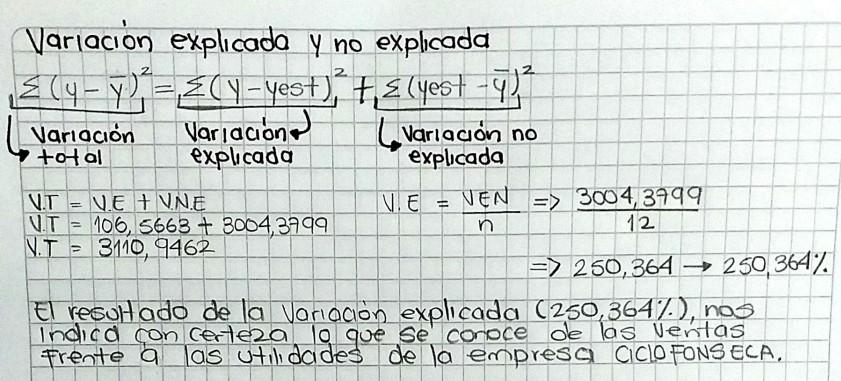 Variación explicada y no explicada
Σ(y-ȳ)² = Σ(y-yest)² + Σ(yest-ȳ)²
Variación total
Variación explicada
Variación no explicada
V.T = V.E + V.N.E
V.T = 106,5663 + 3004,3799
V.T = 3110,9462
V.E = VEN/n => 3004,3799/12
=> 250,364 → 250,364%
El resultado de la variación explicada (250,364%), nos
indica con certeza lo que se conoce de las ventas
frente a las utilidades de la empresa CICLOFONSECA.